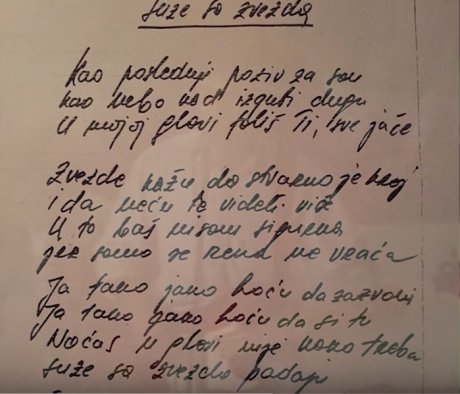 suze sa zvezda
Kao poslednji poziv za son
kao nebo kad izgubi dugu
U mojoj glavi fališ Ti, sve jače
Zvezde kažu da stvarno je kraj
i da neću te videti više
U to baš nisam sigurna
jer samo se rena ne vraća
Ja tako jako hoću da zazvoni
Ja tako jako hoću da si tu
Noćas u glavi nije kako treba
suze sa zvezda padaju